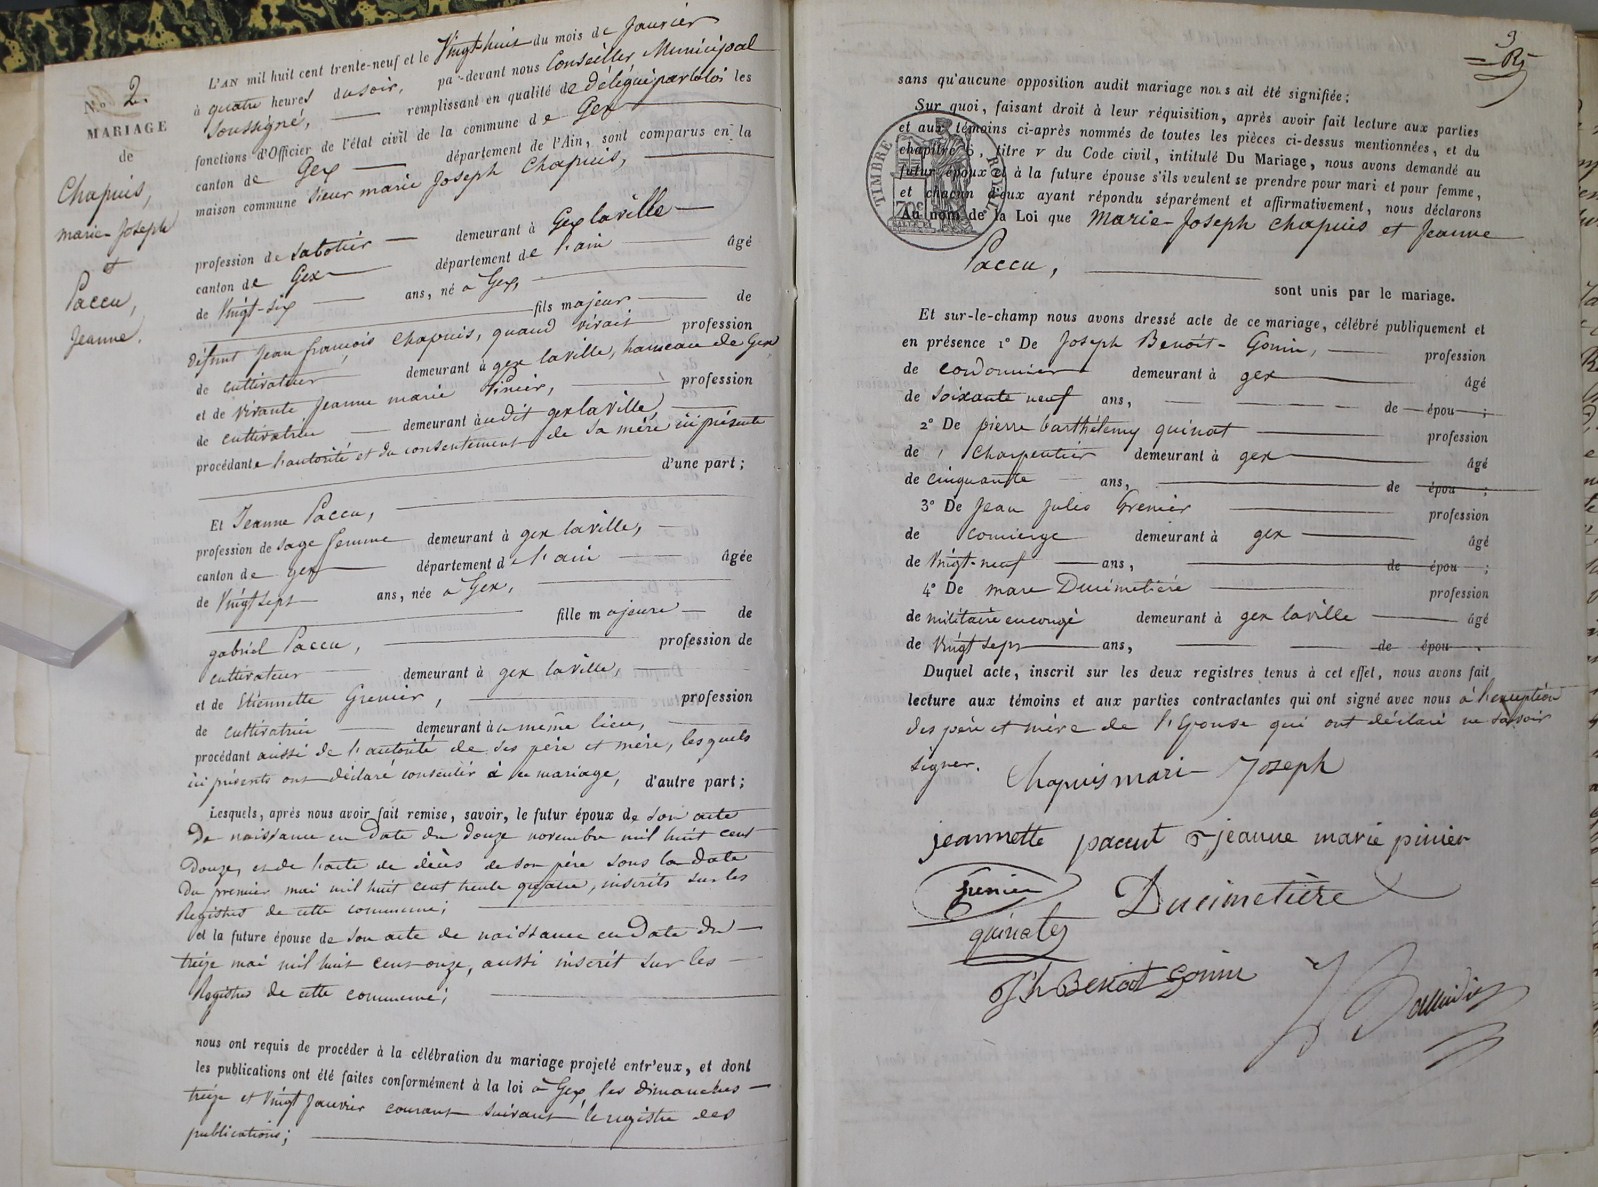 N.º 2.
MARIAGE
de
Chapuis,
marie-Joseph
et
Paccu,
Jeanne.
L'AN mil huit cent trente-neuf et le Vingt huit du mois de Janvier
à quatre heures du soir, par-devant nous Conseiller Municipal
soussigné, remplissant en qualité de délégué par la loi les
fonctions d'Officier de l'état civil de la commune de Gex
canton de Gex département de l'Ain, sont comparus en la
maison commune sieur marie Joseph Chapuis,
profession de sabotier demeurant à Gex la ville
canton de Gex département de l'ain âgé
de Vingt-six ans, né à Gex,
fils majeur de
défunt Jean françois Chapuis, quand vivait profession
de cultivateur demeurant à gex la ville, hameau de Gex,
et de vivante Jeanne marie Pinier, profession
de cultivatrice demeurant audit gex la Ville,
procédant de l'autorité et du consentement de sa mère ici présente
d'une part ;
Et Jeanne Paccu,
profession de sage femme demeurant à gex la ville,
canton de gex département de l'ain âgée
de Vingt sept ans, née à Gex,
fille majeure de
gabriel Paccu, profession de
cultivateur demeurant à gex la ville,
et de Etiennette Grenier, profession
de cultivatrice demeurant au même lieu,
procédant aussi de l'autorité de ses père et mère, lesquels
ici présents ont déclaré consentir à ce mariage, d'autre part ;
Lesquels, après nous avoir fait remise, savoir, le futur époux de son acte
De naissance en date du douze novembre mil huit cent
Douze, et de l'acte de décès de son père sous la date
Du premier mai mil huit cent trente quatre, inscrits sur les
Registres de cette commune ;
et la future épouse de son acte de naissance en date du
treize mai mil huit cent onze, aussi inscrit sur les
Registres de cette commune ;
nous ont requis de procéder à la célébration du mariage projeté entr'eux, et dont
les publications ont été faites conformément à la loi à Gex, les dimanches
treize et Vingt Janvier courant suivant le registre des
publications ;
3
sans qu'aucune opposition audit mariage nous ait été signifiée ;
Sur quoi, faisant droit à leur réquisition, après avoir fait lecture aux parties
et aux témoins ci-après nommés de toutes les pièces ci-dessus mentionnées, et du
chapitre 6, titre v du Code civil, intitulé Du Mariage, nous avons demandé au
futur époux et à la future épouse s'ils veulent se prendre pour mari et pour femme,
et chacun d'eux ayant répondu séparément et affirmativement, nous déclarons
Au nom de la Loi que Marie-Joseph chapuis et Jeanne
Paccu,
sont unis par le mariage.
TIMBRE ROYAL
Et sur-le-champ nous avons dressé acte de ce mariage, célébré publiquement et
en présence 1º De Joseph Benoit-Gonin, profession
de cordonnier demeurant à gex âgé
de soixante neuf ans, de épou ;
2º De pierre barthélemy quinat profession
de charpentier demeurant à gex âgé
de cinquante ans, de épou ;
3º De Jean Jules Grenier profession
de concierge demeurant à gex âgé
de Vingt-neuf ans, de épou ;
4º De marc Ducimetière profession
de militaire en congé demeurant à gex la ville âgé
de Vingt sept ans, de épou .
Duquel acte, inscrit sur les deux registres tenus à cet effet, nous avons fait
lecture aux témoins et aux parties contractantes qui ont signé avec nous à l'exception
des père et mère de l'épouse qui ont déclaré ne savoir
signer.
Chapuis mari Joseph
jeannette paccut jeanne marie pinier
Grenier
Ducimetière
quinat
Jh Benoit Gonin